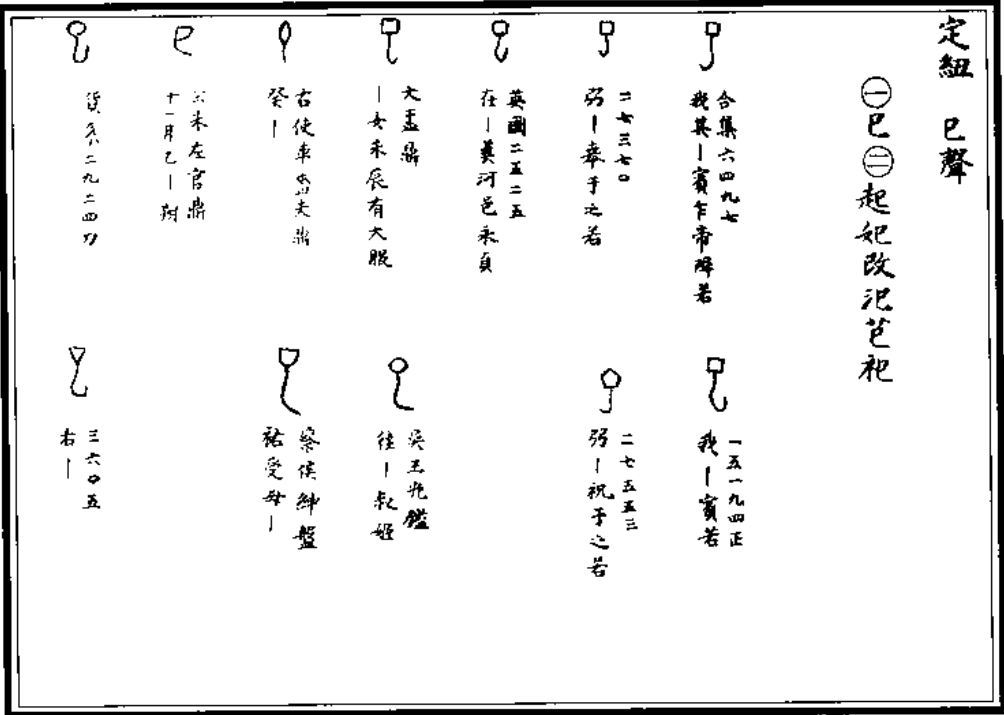 定紐 巳聲
㊀巳㊁起妃改汜芑祀
合集六四九七
我其丨賓乍帝降若
一五一九四正
我丨賓若
二七三七〇
弜丨奉于之若
二七五五三
弜丨祝于之若
英國二五二五
在丨奠河邑永貞
大盂鼎
丨女未辰有大服
吳王光鑑
往丨叔姬
右使車嗇夫鼎
癸丨
蔡侯紳盤
祐受毋丨
公朱左官鼎
十一月乙丨朔
貨系二九二四刀
三六〇五
右丨